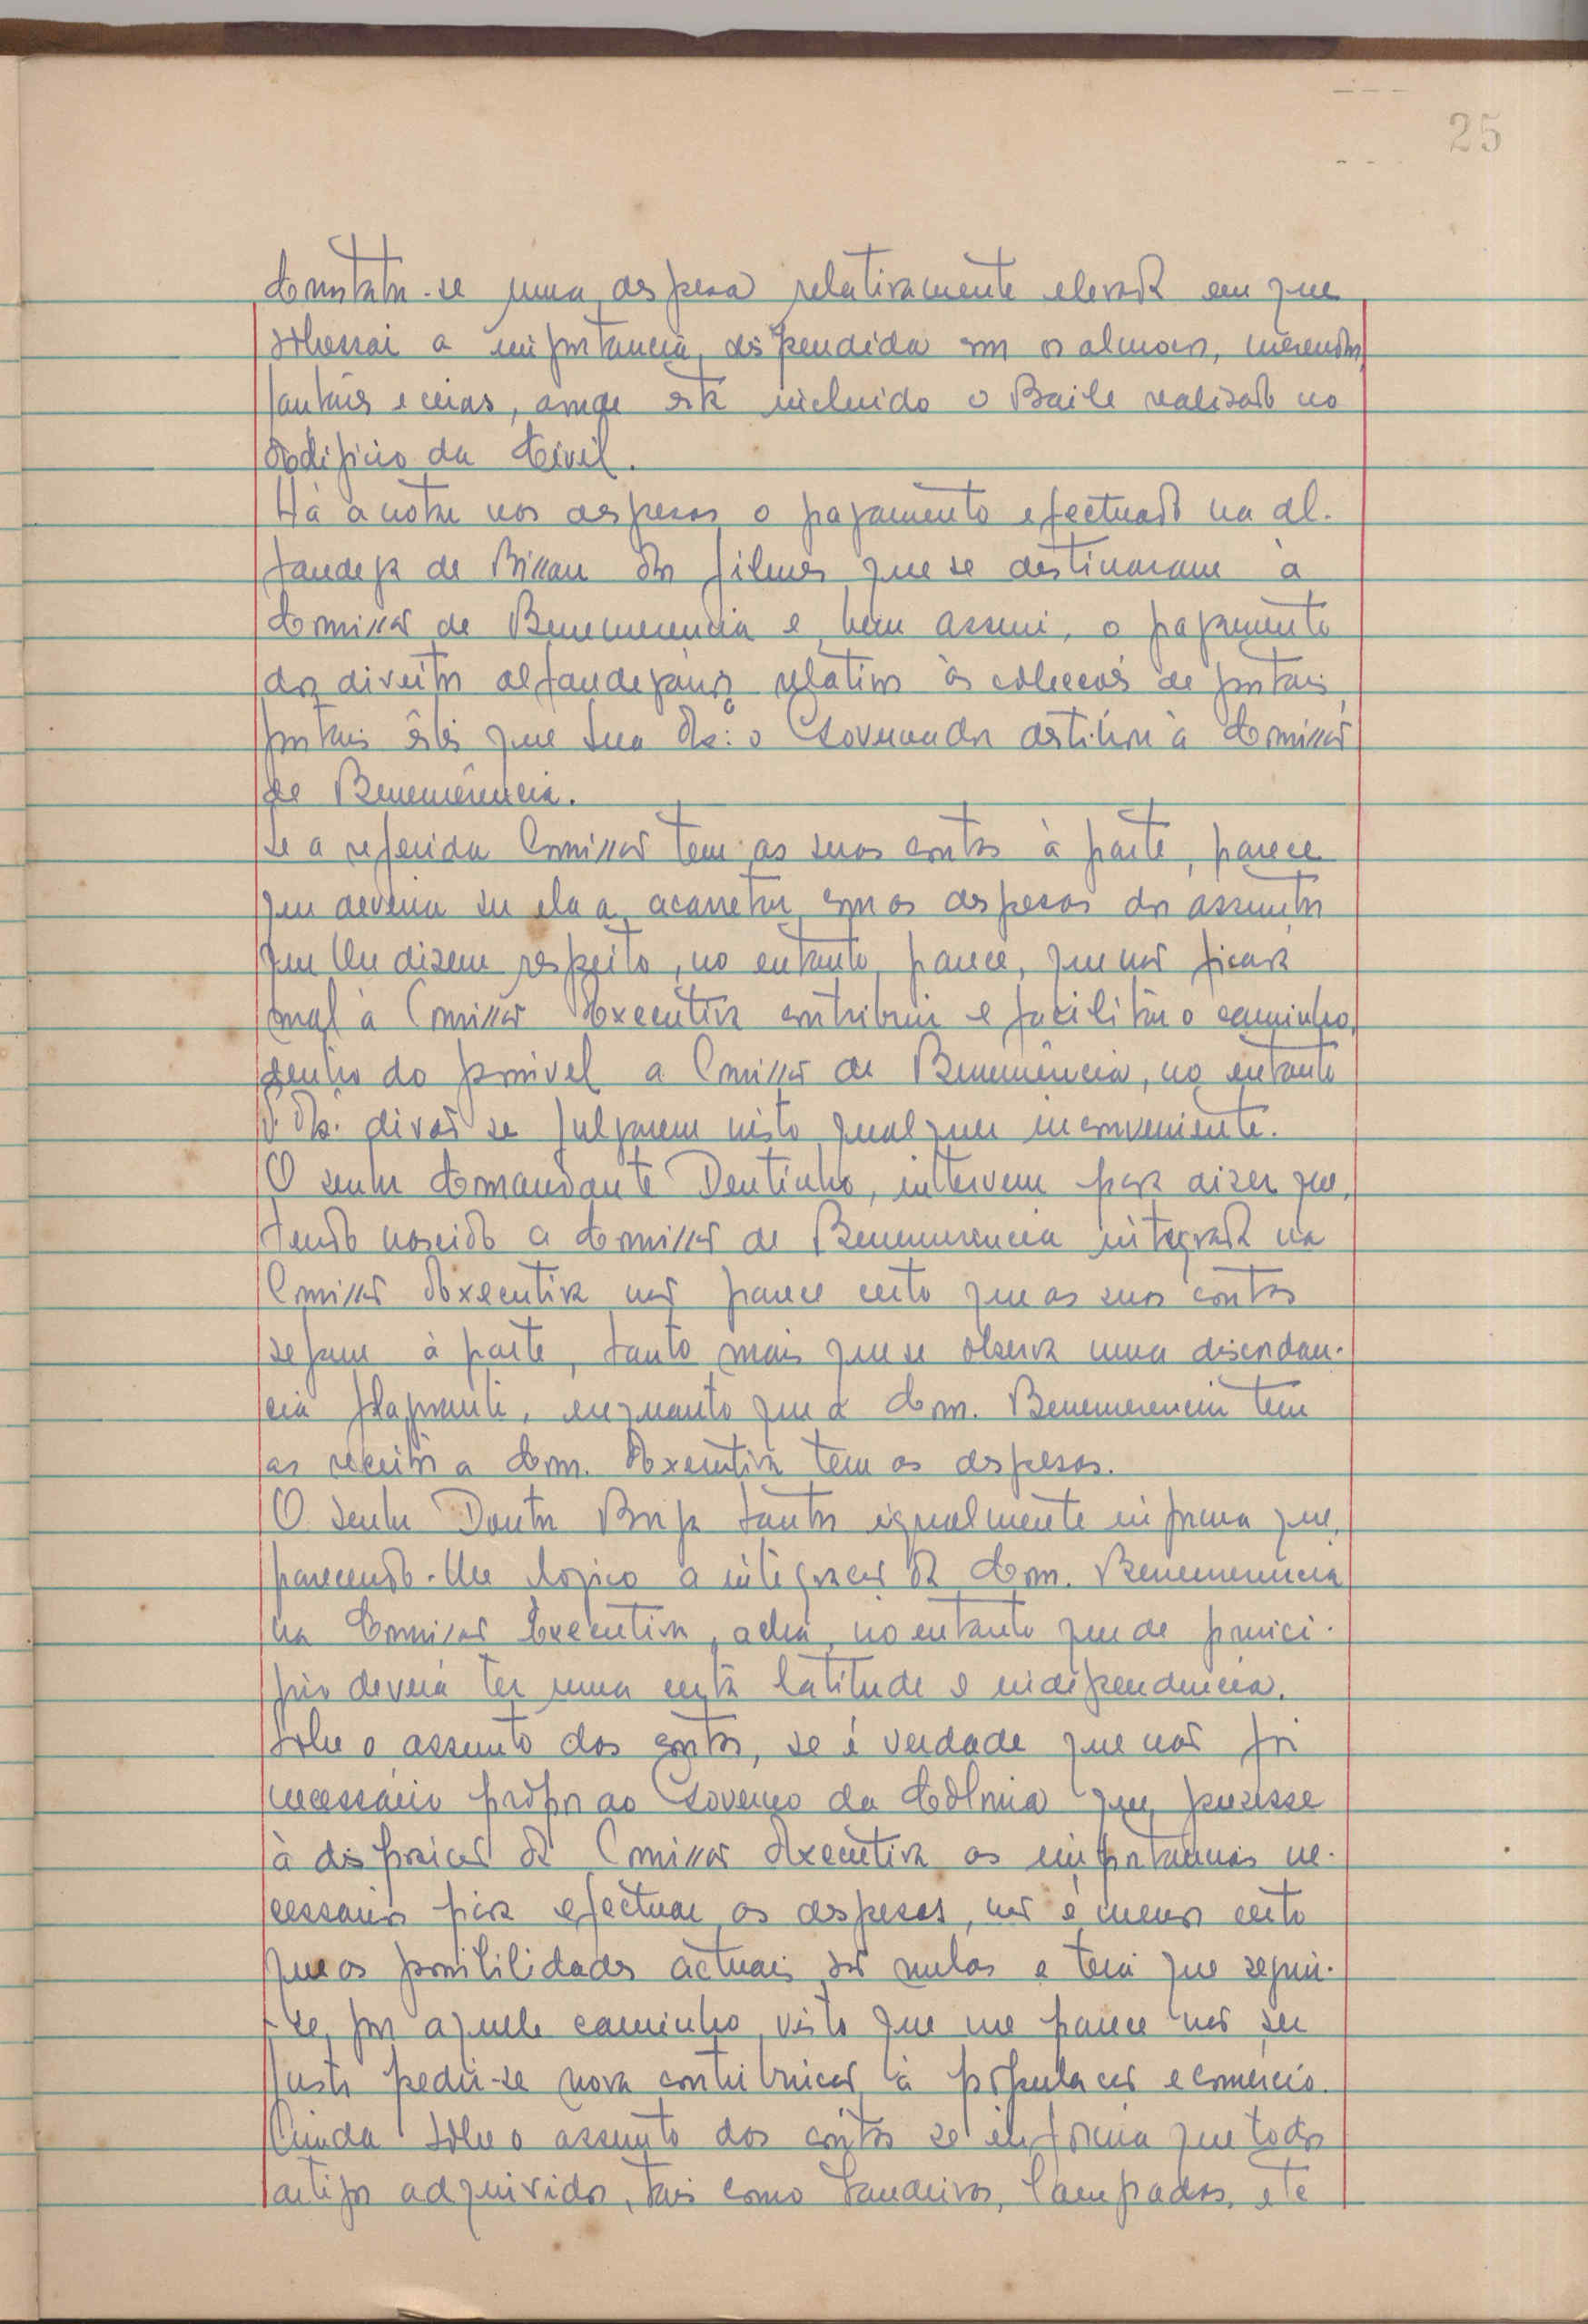 25
Constata-se uma despesa relativamente elevada em que
sobressai a importancia, dispendida com os almoços, merendas,
jantares e ceias, aonde está incluido o Baile realizado no
Edificio da Civil.
Há a notar nas despesas o pagamento efectuado na Al-
fandega de Bissau dos filmes que se destinaram à
Comissão de Benemerencia e bem assim, o pagamento
dos direitos alfandegários relativos às colecções de postais,
postais êstes que Sua Ex.ª o Governador destinou à Comissão
de Benemerência.
Se a referida Comissão tem as suas contas à parte, parece
que deveria ser ela a acarretar com as despesas dos assuntos
que lhe dizem respeito, no entanto, parece, que não ficará
mal à Comissão Executiva contribuir e facilitar o caminho,
dentro do possivel a Comissão de Benemerência, no entanto
V. Ex. dirão se julgarem nisto qualquer inconveniente.
O senhor Comandante Dentinho, intervem para dizer que,
tendo nascido a Comissão de Benemerencia integrada na
Comissão Executiva não parece certo que as suas contas
sejam à parte, tanto mais que se observa uma discordan-
cia flagrante, enquanto que a Com. Benemerencia tem
as receitas a Com. Executiva tem as despesas.
O senhor Doutor Borja Santos igualmente informa que,
parecendo-lhe logico a integração da Com. Benemerencia
na Comissão Executiva, acha, no entanto que de princi-
pio deveria ter uma certa latitude e independencia.
Sobre o assunto das contas, se é verdade que não foi
necessário propor ao Governo da Colonia que puzesse
à disposição da Comissão Executiva as importancias ne-
cessarias para efectuar as despesas, não é menos certo
que as possibilidades actuais são nulas e terá que seguir-
-se, por aquele caminho, visto que me parece não ser
justo pedir-se nova contribuição à população e comércio.
Ainda sobre o assunto das contas se informa que todos
artigos adquiridos, tais como bandeiras, lampadas, etc